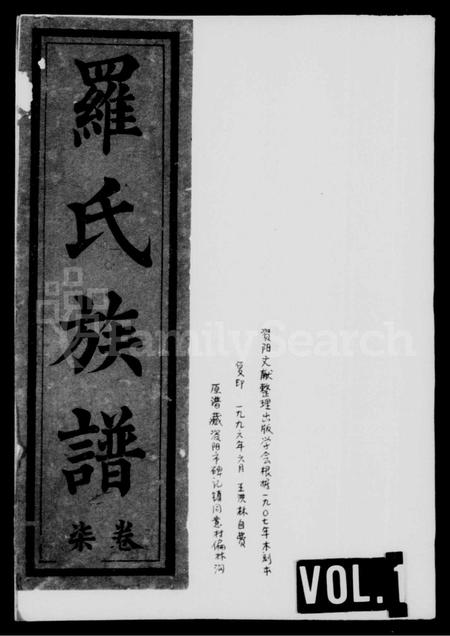 羅氏族譜
卷柒
資阳文献整理出版学会根据一九〇七年木刻本
复印 一九九六年六月 王洪林自费
原谱藏资阳市碑记镇同意村偏林沟
FamilySearch
VOL. 1